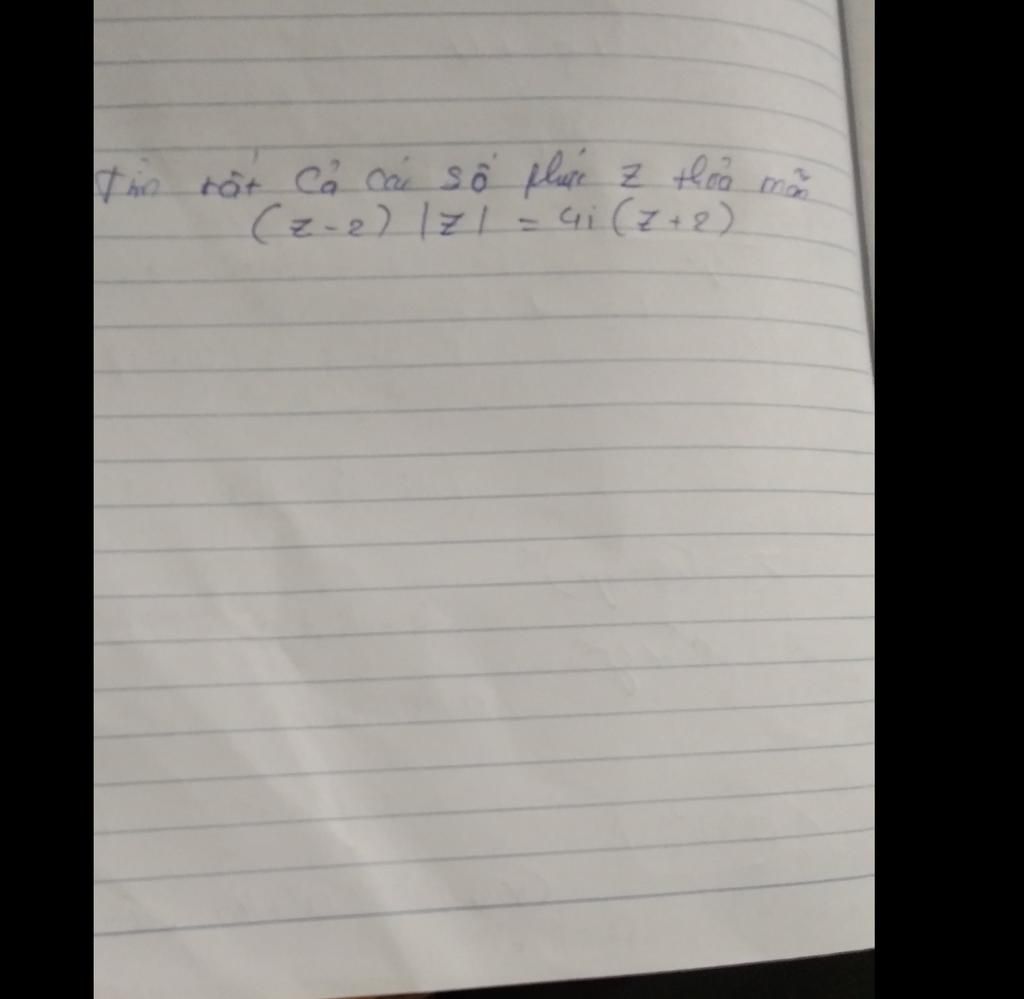 Tìm tất cả các số phức z thoả mãn
(z - 2) |z| = 4i (z + 2)